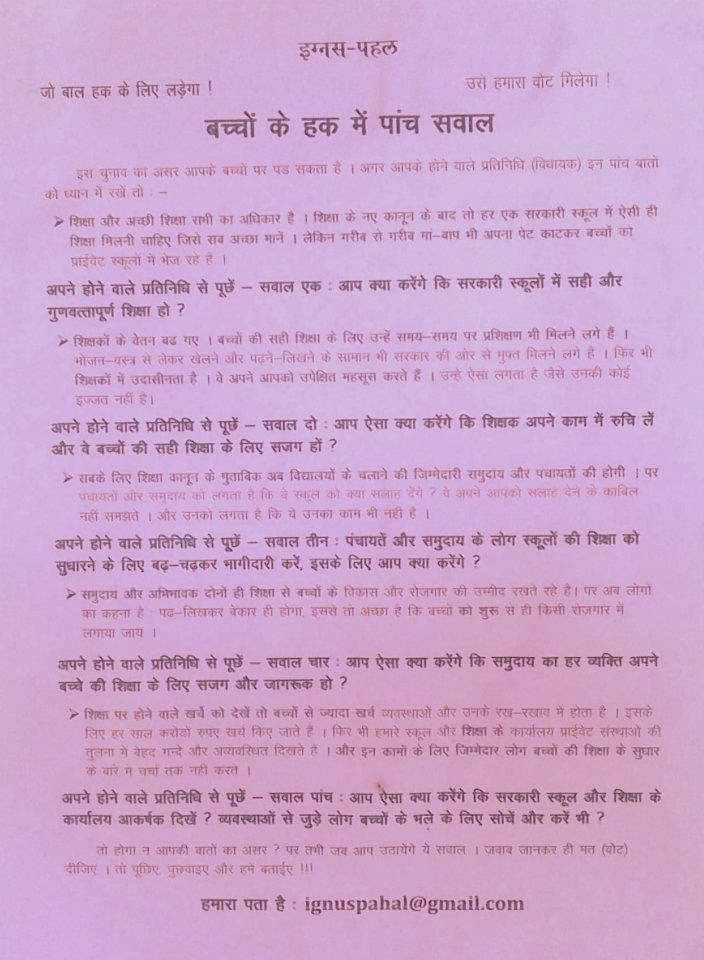 इग्नस-पहल
जो बाल हक के लिए लड़ेगा !
उसे हमारा वोट मिलेगा !
बच्चों के हक में पांच सवाल
इस चुनाव का असर आपके बच्चों पर पड सकता है । अगर आपके होने वाले प्रतिनिधि (विधायक) इन पांच बातों
को ध्यान में रखें तो : –
➢ शिक्षा और अच्छी शिक्षा सभी का अधिकार है । शिक्षा के नए कानून के बाद तो हर एक सरकारी स्कूल में ऐसी ही
शिक्षा मिलनी चाहिए जिसे सब अच्छा मानें । लेकिन गरीब से गरीब मा–बाप भी अपना पेट काटकर बच्चों को
प्राईवेट स्कूलों में भेज रहे हैं ।
अपने होने वाले प्रतिनिधि से पूछें – सवाल एक : आप क्या करेंगे कि सरकारी स्कूलों में सही और
गुणवत्तापूर्ण शिक्षा हो ?
➢ शिक्षकों के वेतन बढ गए । बच्चों की सही शिक्षा के लिए उन्हें समय–समय पर प्रशिक्षण भी मिलने लगे हैं ।
भोजन–वस्त्र से लेकर खेलने और पढ़ने–लिखने के सामान भी सरकार की ओर से मुफ्त मिलने लगे हैं । फिर भी
शिक्षकों में उदासीनता है । वे अपने आपको उपेक्षित महसूस करते हैं । उन्हे ऐसा लगता है जैसे उनकी कोई
इज्जत नहीं है।
अपने होने वाले प्रतिनिधि से पूछें – सवाल दो : आप ऐसा क्या करेंगे कि शिक्षक अपने काम में रुचि लें
और वे बच्चों की सही शिक्षा के लिए सजग हों ?
➢ सबके लिए शिक्षा कानून के मुताबिक अब विद्यालयों के चलाने की जिम्मेदारी समुदाय और पंचायतों की होगी । पर
पंचायतों और समुदाय को लगता है कि ये स्कूल को क्या सलाह देंगे ? वे अपने आपको सलाह देने के काबिल
नही समझते । और उनको लगता है कि ये उनका काम भी नही है ।
अपने होने वाले प्रतिनिधि से पूछें – सवाल तीन : पंचायतें और समुदाय के लोग स्कूलों की शिक्षा को
सुधारने के लिए बढ़–चढ़कर भागीदारी करें, इसके लिए आप क्या करेंगे ?
➢ समुदाय और अभिभावक दोनों ही शिक्षा से बच्चों के विकास और रोजगार की उम्मीद रखते रहे है। पर अब लोगो
का कहना है : पढ़–लिखकर बेकार ही होगा, इससे तो अच्छा है कि बच्चों को शुरू से ही किसी रोजगार में
लगाया जाय ।
अपने होने वाले प्रतिनिधि से पूछें – सवाल चार : आप ऐसा क्या करेंगे कि समुदाय का हर व्यक्ति अपने
बच्चे की शिक्षा के लिए सजग और जागरूक हो ?
➢ शिक्षा पर होने वाले खर्चे को देखें तो बच्चों से ज्यादा खर्च व्यवस्थाओं और उनके रख–रखाव में होता है । इसके
लिए हर साल करोडों रुपए खर्च किए जाते हैं । फिर भी हमारे स्कूल और शिक्षा के कार्यालय प्राईवेट संस्थाओं की
तुलना में बेहद गन्दे और अव्यवस्थित दिखते है । और इन कामों के लिए जिम्मेदार लोग बच्चों की शिक्षा के सुधार
के बारे में चर्चा तक नही करते ।
अपने होने वाले प्रतिनिधि से पूछें – सवाल पांच : आप ऐसा क्या करेंगे कि सरकारी स्कूल और शिक्षा के
कार्यालय आकर्षक दिखें ? व्यवस्थाओं से जुड़े लोग बच्चों के भले के लिए सोचें और करें भी ?
तो होगा न आपकी बातों का असर ? पर तभी जब आप उठायेंगे ये सवाल । जवाब जानकर ही मत (वोट)
दीजिए । तो पूछिए, पुछवाइए और हमें बताईए !!!
हमारा पता है : ignuspahal@gmail.com